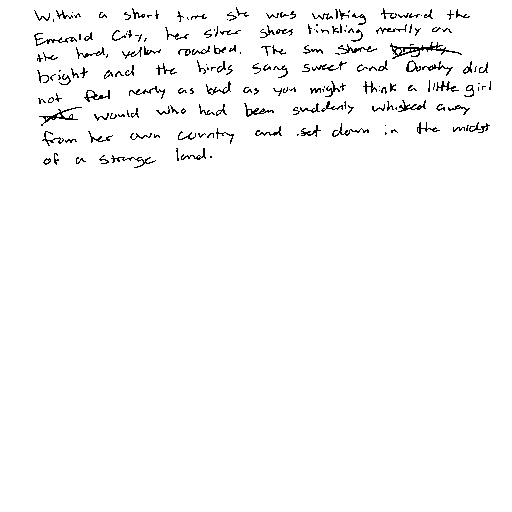 Within a short time she was walking toward the
Emerald City, her silver shoes tinkling merrily on
the hard, yellow roadbed. The sun shone brightly
bright and the birds sang sweet and Dorothy did
not feel nearly as bad as you might think a little girl
would who had been suddenly whisked away
from her own country and set down in the midst
of a strange land.